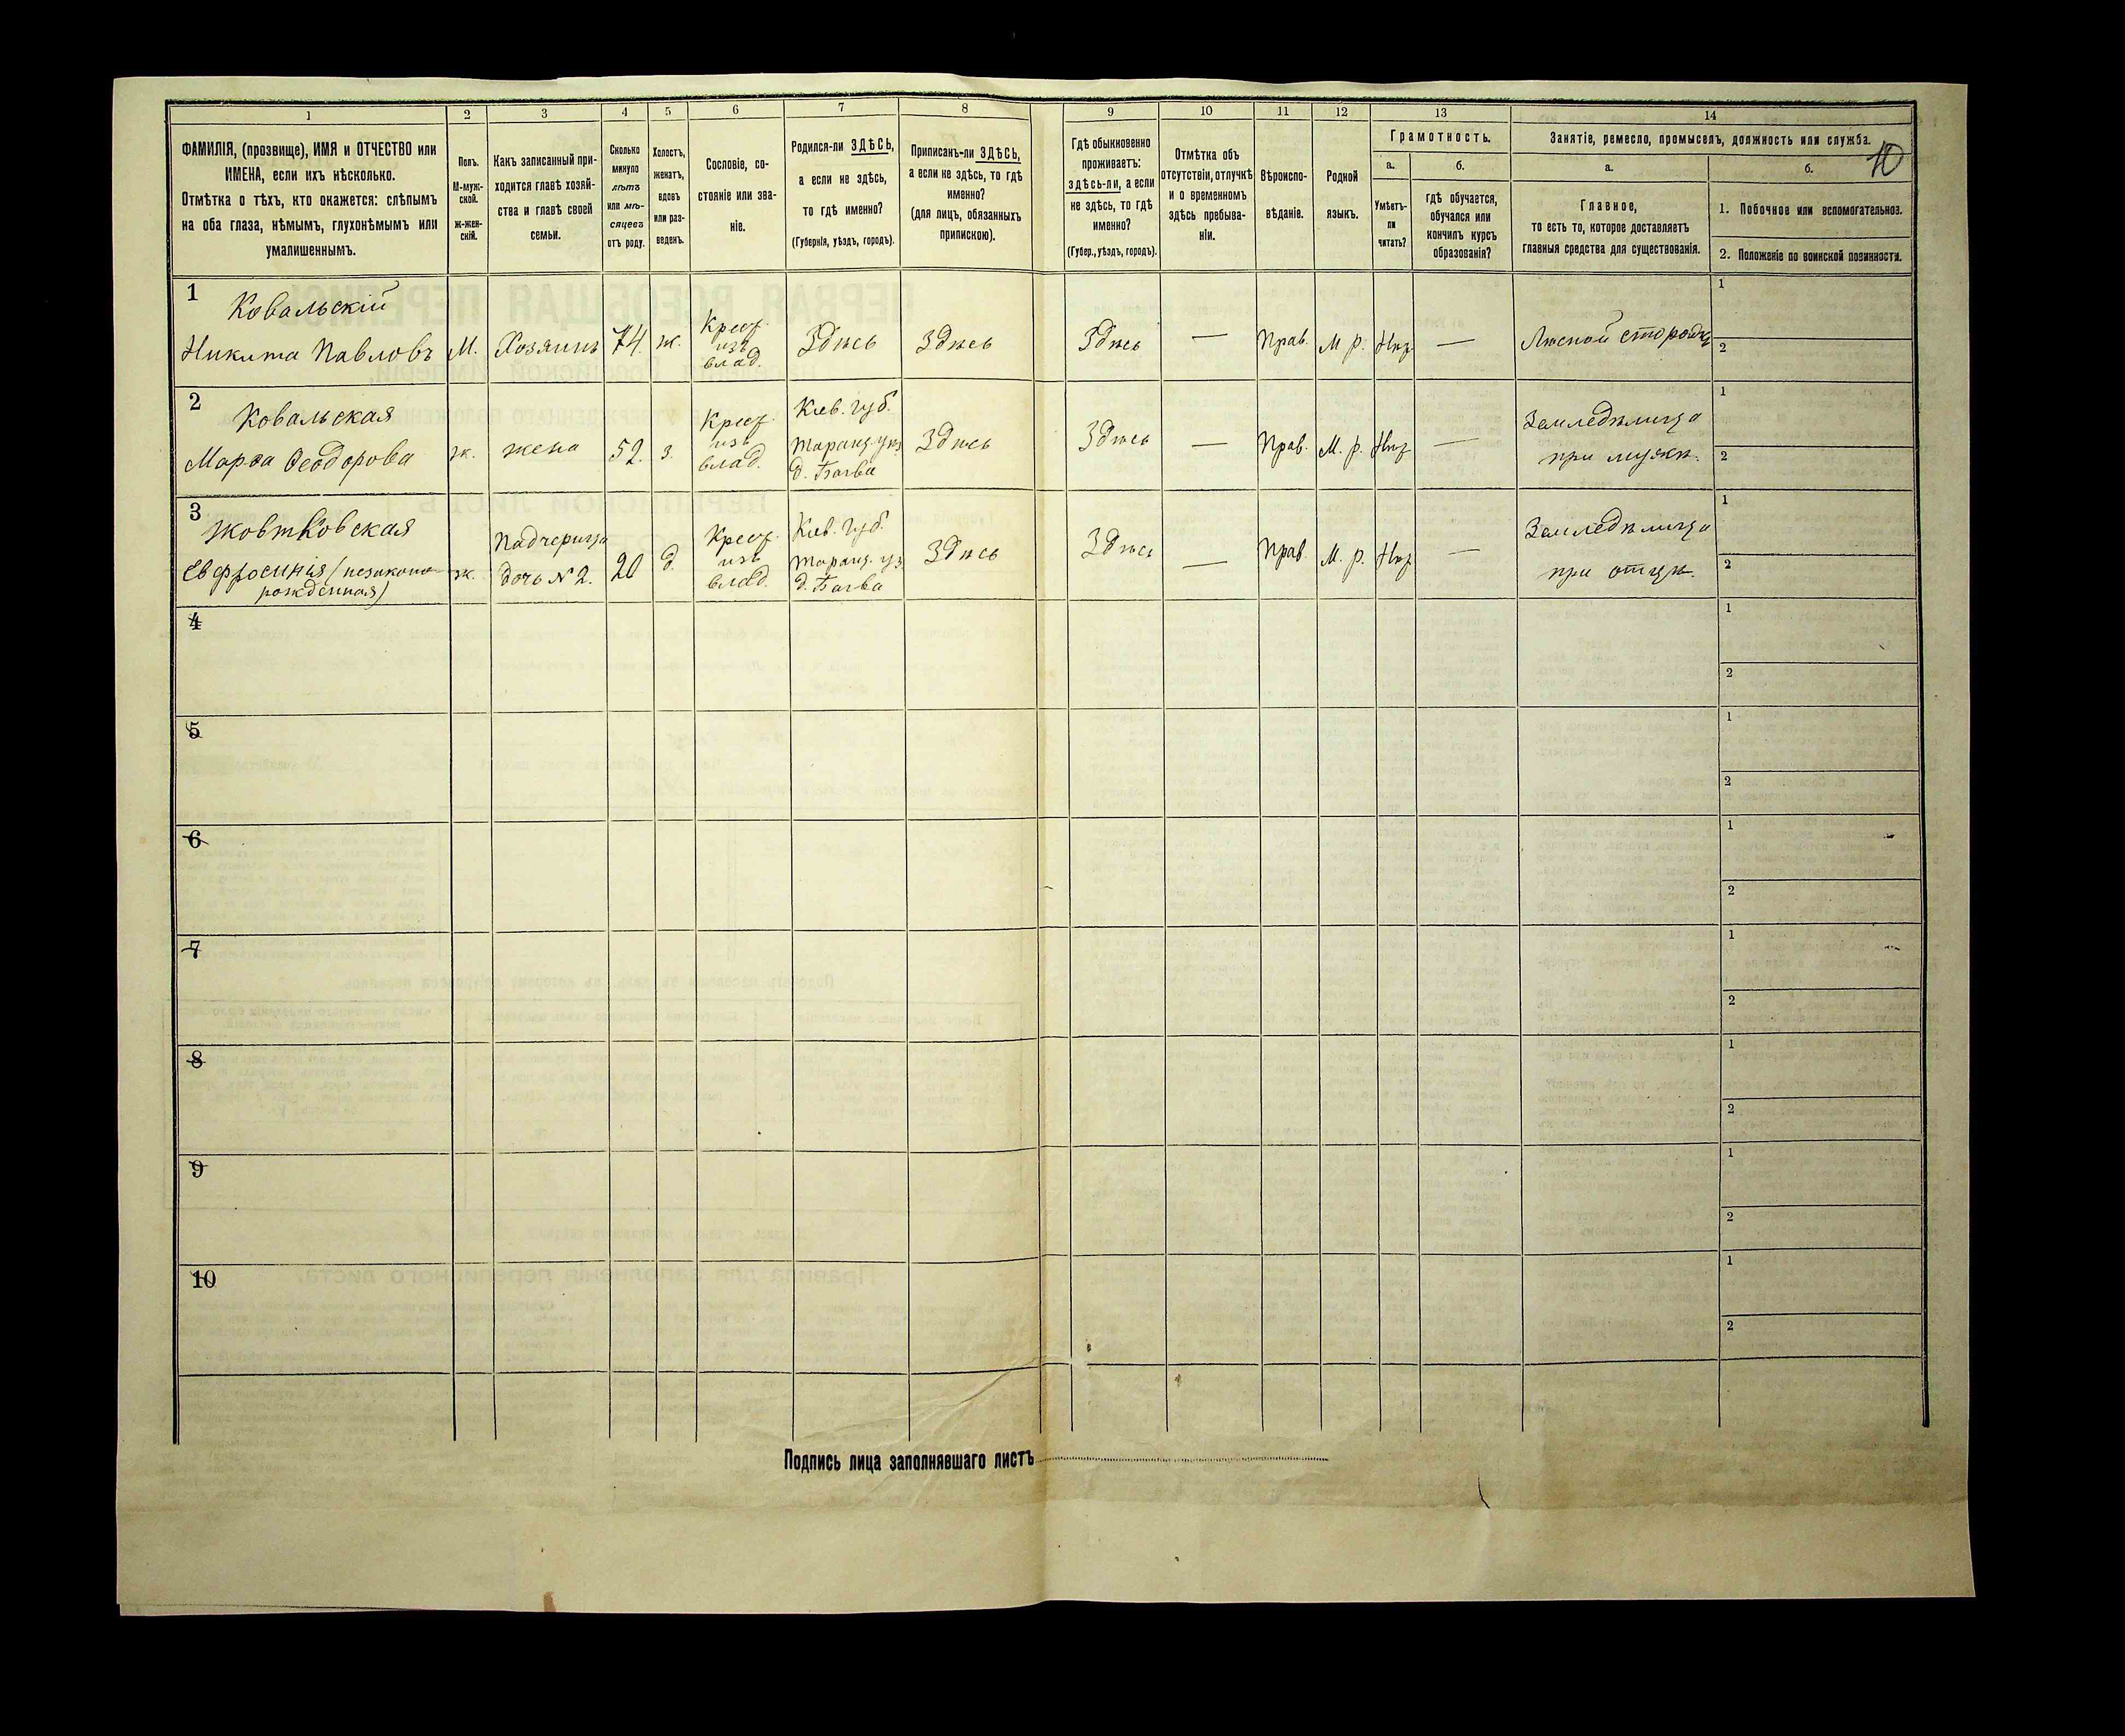 1 2 3 4 5 6 7 8 9 10 11 12 13 14
ФАМИЛІЯ, (прозвище), ИМЯ и ОТЧЕСТВО или
ИМЕНА, если ихъ нѣсколько.
Отмѣтка о тѣхъ, кто окажется: слѣпымъ
на оба глаза, нѣмымъ, глухонѣмымъ или
умалишеннымъ.
Полъ.
М-муж-
ской.
ж-жен-
скій.
Какъ записанный при-
ходится главѣ хозяй-
ства и главѣ своей
семьи.
Сколько
минуло
лѣтъ
или мѣ-
сяцевъ
отъ роду.
Холостъ,
женатъ,
вдовъ
или раз-
веденъ.
Сословіе, со-
стояніе или зва-
ніе.
Родился-ли ЗДѢСЬ,
а если не здѣсь,
то гдѣ именно?
(Губернія, уѣздъ, городъ).
Приписанъ-ли ЗДѢСЬ,
а если не здѣсь, то гдѣ
именно?
(для лицъ, обязанныхъ
припискою).
Гдѣ обыкновенно
проживаетъ:
здѣсь-ли, а если
не здѣсь, то гдѣ
именно?
(Губер., уѣздъ, городъ).
Отмѣтка объ
отсутствіи, отлучкѣ
и о временномъ
здѣсь пребыва-
ніи.
Вѣроиспо-
вѣданіе.
Родной
языкъ.
Грамотность.
а.
Умѣетъ-
ли
читать?
б.
гдѣ обучается,
обучался или
кончилъ курсъ
образованія?
Занятіе, ремесло, промыселъ, должность или служба.
10
а.
Главное,
то есть то, которое доставляетъ
главныя средства для существованія.
б.
1. Побочное или вспомогательное.
2. Положеніе по воинской повинности.
1
Ковальскій
Никита Павловъ
М.
Хозяинъ
74.
ж.
Крест.
изъ
влад.
Здѣсь
Здѣсь
Здѣсь
—
Прав.
М. р.
Нѣт
—
Лѣсной сторожъ
1
2
2
Ковальская
Марѳа Ѳеодорова
ж.
жена
52.
з.
Крест.
изъ
влад.
Кіев. губ.
Таращ. уѣз.
д. Багва
Здѣсь
Здѣсь
—
Прав.
М. р.
Нѣт
—
Земледѣлица
при мужѣ.
1
2
3
Жовтковская
Евфросинія (незаконо-
рожденная)
ж.
Падчерица
дочь № 2.
20
д.
Крест.
изъ
влад.
Кіев. губ.
Таращ. уѣз.
д. Багва
Здѣсь
Здѣсь
—
Прав.
М. р.
Нѣт
—
Земледѣлица
при отцѣ.
1
2
4
1
2
5
1
2
6
1
2
7
1
2
8
1
2
9
1
2
10
1
2
Подпись лица заполнявшаго листъ